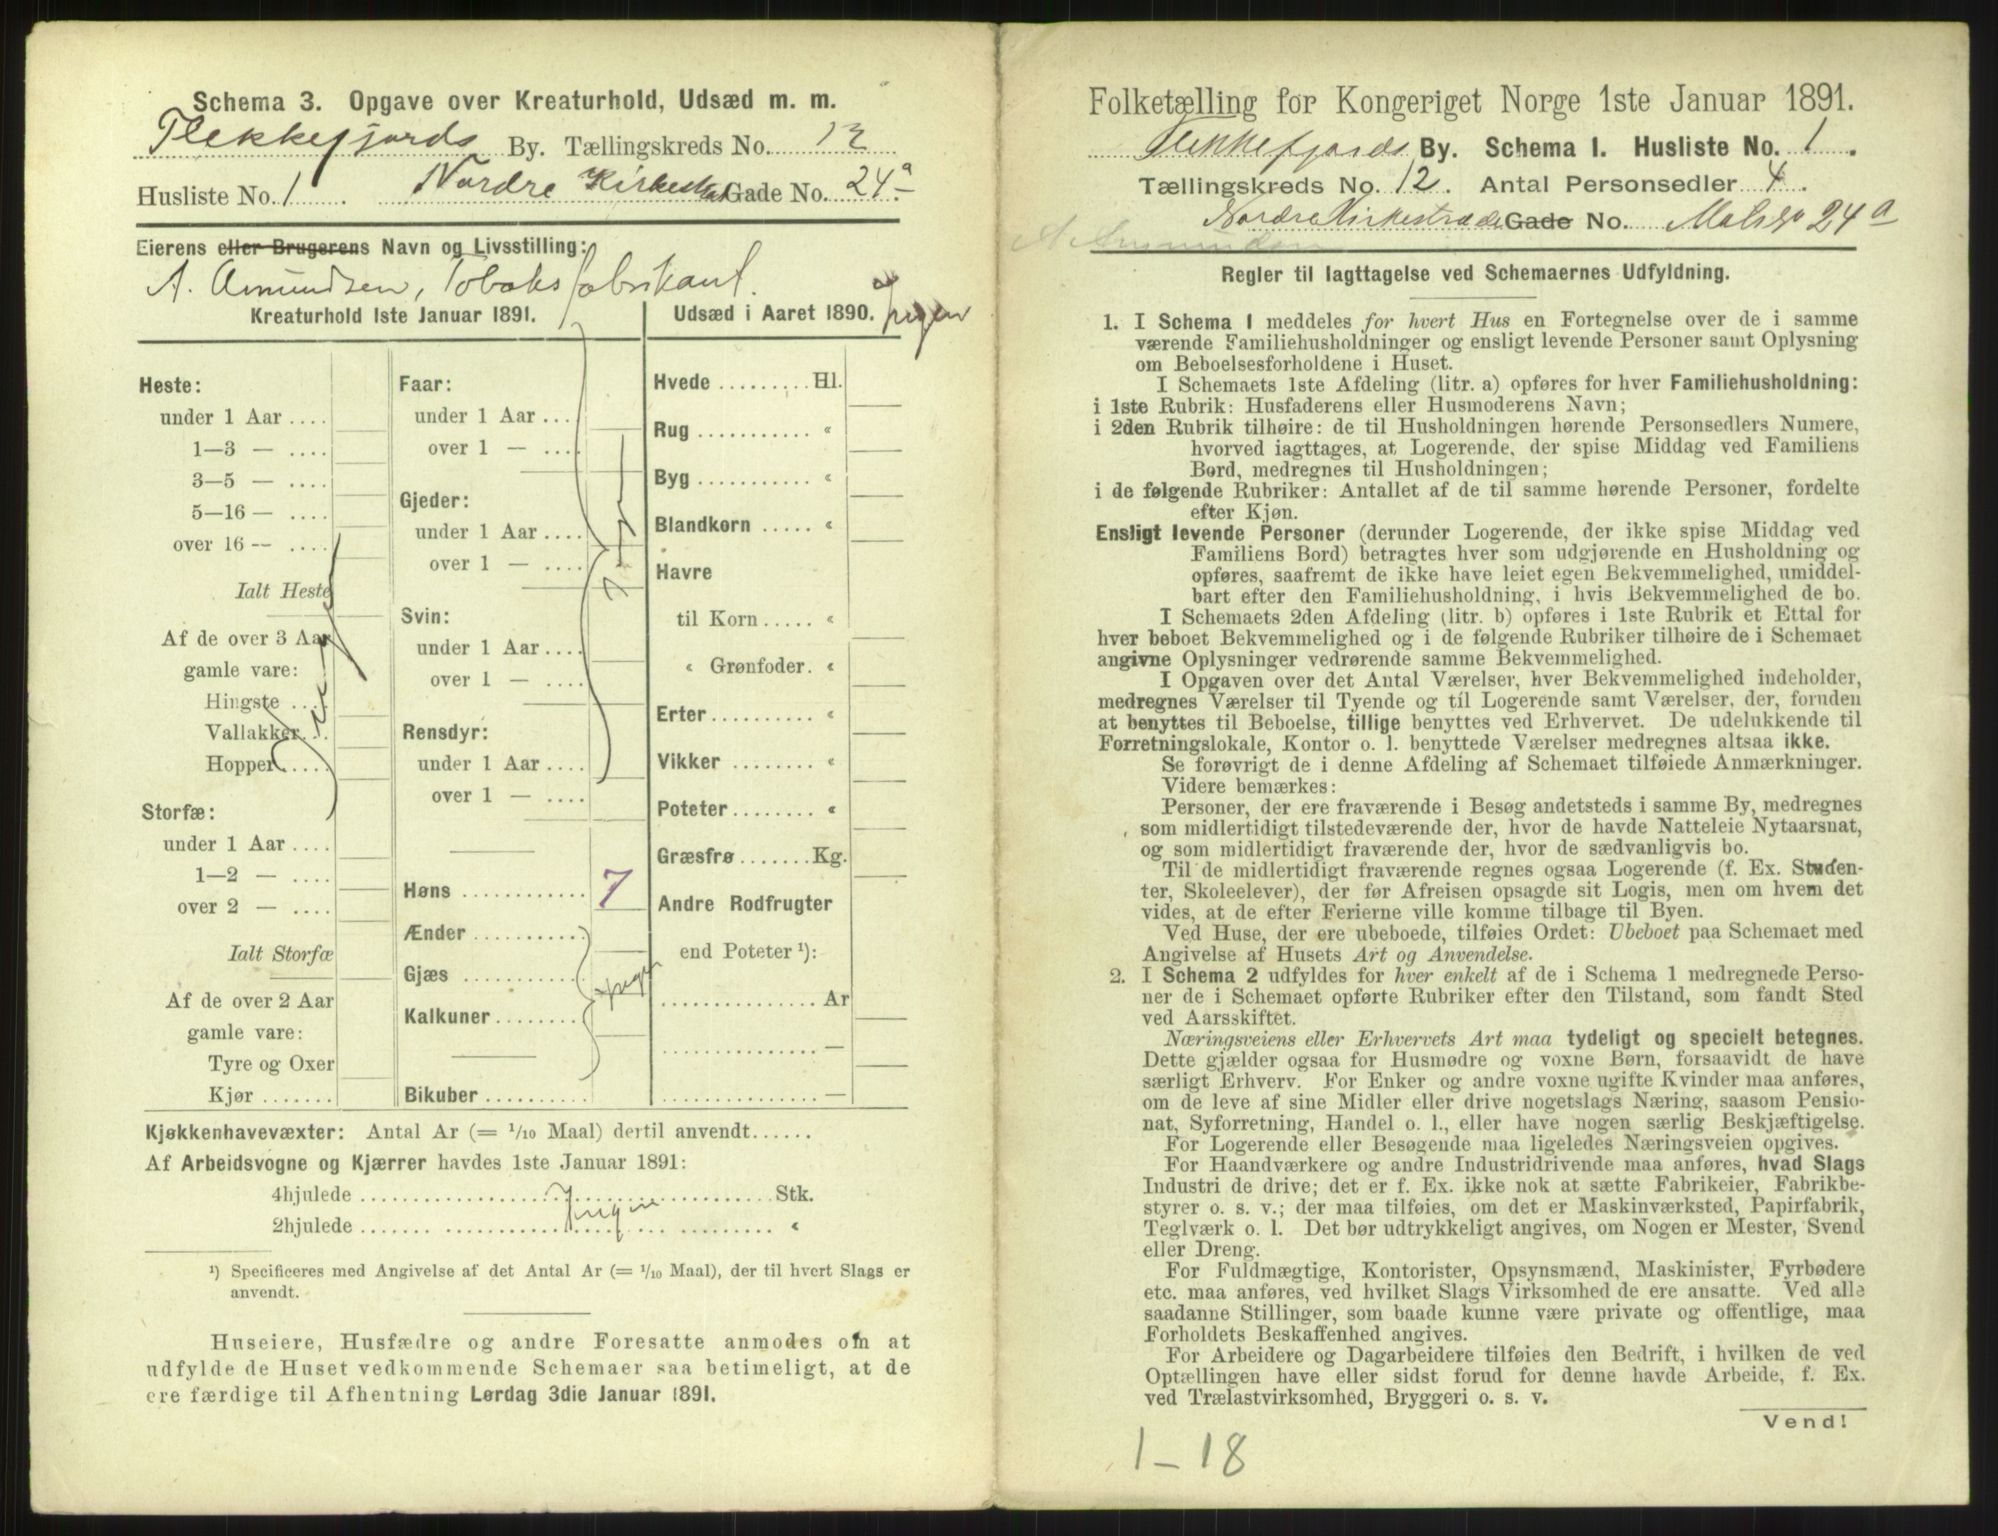 Schema 3. Opgave over Kreaturhold, Udsæd m. m.
Flekkefjords By. Tællingskreds No. 12
Husliste No. 1 Nordre Kirkestræt Gade No. 24a
Eierens eller Brugerens Navn og Livsstilling:
A. Amundsen, Tobaksfabrikant.
Kreaturhold 1ste Januar 1891.
Heste:
under 1 Aar ....
1—3 — ....
3—5 — ....
5—16 — ....
over 16 — ....
Ialt Heste
Af de over 3 Aar
gamle vare:
Hingste ....
Vallakker...
Hopper.....
Storfæ:
under 1 Aar ....
1—2 — ....
over 2 — ....
Ialt Storfæ
Af de over 2 Aar
gamle vare:
Tyre og Oxer
Kjør .......
Faar:
under 1 Aar ....
over 1 — ....
Gjeder:
under 1 Aar ....
over 1 — ....
Svin:
under 1 Aar ....
over 1 — ....
Rensdyr:
under 1 Aar ....
over 1 — ....
Høns ........... 7
Ænder ..........
Gjæs ...........
Kalkuner ........
Ingen
Bikuber ..........
Udsæd i Aaret 1890. Ingen
Hvede ......... Hl.
Rug ........... «
Byg ........... «
Blandkorn ..... «
Havre
til Korn ..... «
« Grønfoder. «
Erter .......... «
Vikker ........ «
Poteter ........ «
Græsfrø ....... Kg.
Andre Rodfrugter
end Poteter ¹):
............... Ar
............... —
............... —
Kjøkkenhavevæxter: Antal Ar (= 1/10 Maal) dertil anvendt......
Af Arbeidsvogne og Kjærrer havdes 1ste Januar 1891:
4hjulede ............ Ingen ............ Stk.
2hjulede ........................ «
¹) Specificeres med Angivelse af det Antal Ar (= 1/10 Maal), der til hvert Slags er
anvendt.
Huseiere, Husfædre og andre Foresatte anmodes om at
udfylde de Huset vedkommende Schemaer saa betimeligt, at de
ere færdige til Afhentning Lørdag 3die Januar 1891.
Folketælling for Kongeriget Norge 1ste Januar 1891.
Flekkefjords By. Schema 1. Husliste No. 1.
Tællingskreds No. 12. Antal Personsedler 4.
Nordre Kirkestræde Gade No. 24a
A. Amundsen
Regler til Iagttagelse ved Schemaernes Udfyldning.
1. I Schema 1 meddeles for hvert Hus en Fortegnelse over de i samme
værende Familiehusholdninger og ensligt levende Personer samt Oplysning
om Beboelsesforholdene i Huset.
I Schemaets 1ste Afdeling (litr. a) opføres for hver Familiehusholdning:
i 1ste Rubrik: Husfaderens eller Husmoderens Navn;
i 2den Rubrik tilhøire: de til Husholdningen hørende Personsedlers Numere,
hvorved iagttages, at Logerende, der spise Middag ved Familiens
Bord, medregnes til Husholdningen;
i de følgende Rubriker: Antallet af de til samme hørende Personer, fordelte
efter Kjøn.
Ensligt levende Personer (derunder Logerende, der ikke spise Middag ved
Familiens Bord) betragtes hver som udgjørende en Husholdning og
opføres, saafremt de ikke have leiet egen Bekvemmelighed, umiddel-
bart efter den Familiehusholdning, i hvis Bekvemmelighed de bo.
I Schemaets 2den Afdeling (litr. b) opføres i 1ste Rubrik et Ettal for
hver beboet Bekvemmelighed og i de følgende Rubriker tilhøire de i Schemaet
angivne Oplysninger vedrørende samme Bekvemmelighed.
I Opgaven over det Antal Værelser, hver Bekvemmelighed indeholder,
medregnes Værelser til Tyende og til Logerende samt Værelser, der, foruden
at benyttes til Beboelse, tillige benyttes ved Erhvervet. De udelukkende til
Forretningslokale, Kontor o. l. benyttede Værelser medregnes altsaa ikke.
Se forøvrigt de i denne Afdeling af Schemaet tilføiede Anmærkninger.
Videre bemærkes:
Personer, der ere fraværende i Besøg andetsteds i samme By, medregnes
som midlertidigt tilstedeværende der, hvor de havde Natteleie Nytaarsnat,
og som midlertidigt fraværende der, hvor de sædvanligvis bo.
Til de midlertidigt fraværende regnes ogsaa Logerende (f. Ex. Studen-
ter, Skoleelever), der før Afreisen opsagde sit Logis, men om hvem det
vides, at de efter Ferierne ville komme tilbage til Byen.
Ved Huse, der ere ubeboede, tilføies Ordet: Ubeboet paa Schemaet med
Angivelse af Husets Art og Anvendelse.
2. I Schema 2 udfyldes for hver enkelt af de i Schema 1 medregnede Perso-
ner de i Schemaet opførte Rubriker efter den Tilstand, som fandt Sted
ved Aarsskiftet.
Næringsveiens eller Erhvervets Art maa tydeligt og specielt betegnes.
Dette gjælder ogsaa for Husmødre og voxne Børn, forsaavidt de have
særligt Erhverv. For Enker og andre voxne ugifte Kvinder maa anføres,
om de leve af sine Midler eller drive nogetslags Næring, saasom Pensio-
nat, Syforretning, Handel o. l., eller have nogen særlig Beskjæftigelse.
For Logerende eller Besøgende maa ligeledes Næringsveien opgives.
For Haandværkere og andre Industridrivende maa anføres, hvad Slags
Industri de drive; det er f. Ex. ikke nok at sætte Fabrikeier, Fabrikbe-
styrer o. s. v.; der maa tilføies, om det er Maskinværksted, Papirfabrik,
Teglværk o. l. Det bør udtrykkeligt angives, om Nogen er Mester, Svend
eller Dreng.
For Fuldmægtige, Kontorister, Opsynsmænd, Maskinister, Fyrbødere
etc. maa anføres, ved hvilket Slags Virksomhed de ere ansatte. Ved alle
saadanne Stillinger, som baade kunne være private og offentlige, maa
Forholdets Beskaffenhed angives.
For Arbeidere og Dagarbeidere tilføies den Bedrift, i hvilken de ved
Optællingen have eller sidst forud for denne havde Arbeide, f. Ex.
ved Trælastvirksomhed, Bryggeri o. s. v.
Vend!
1 – 18